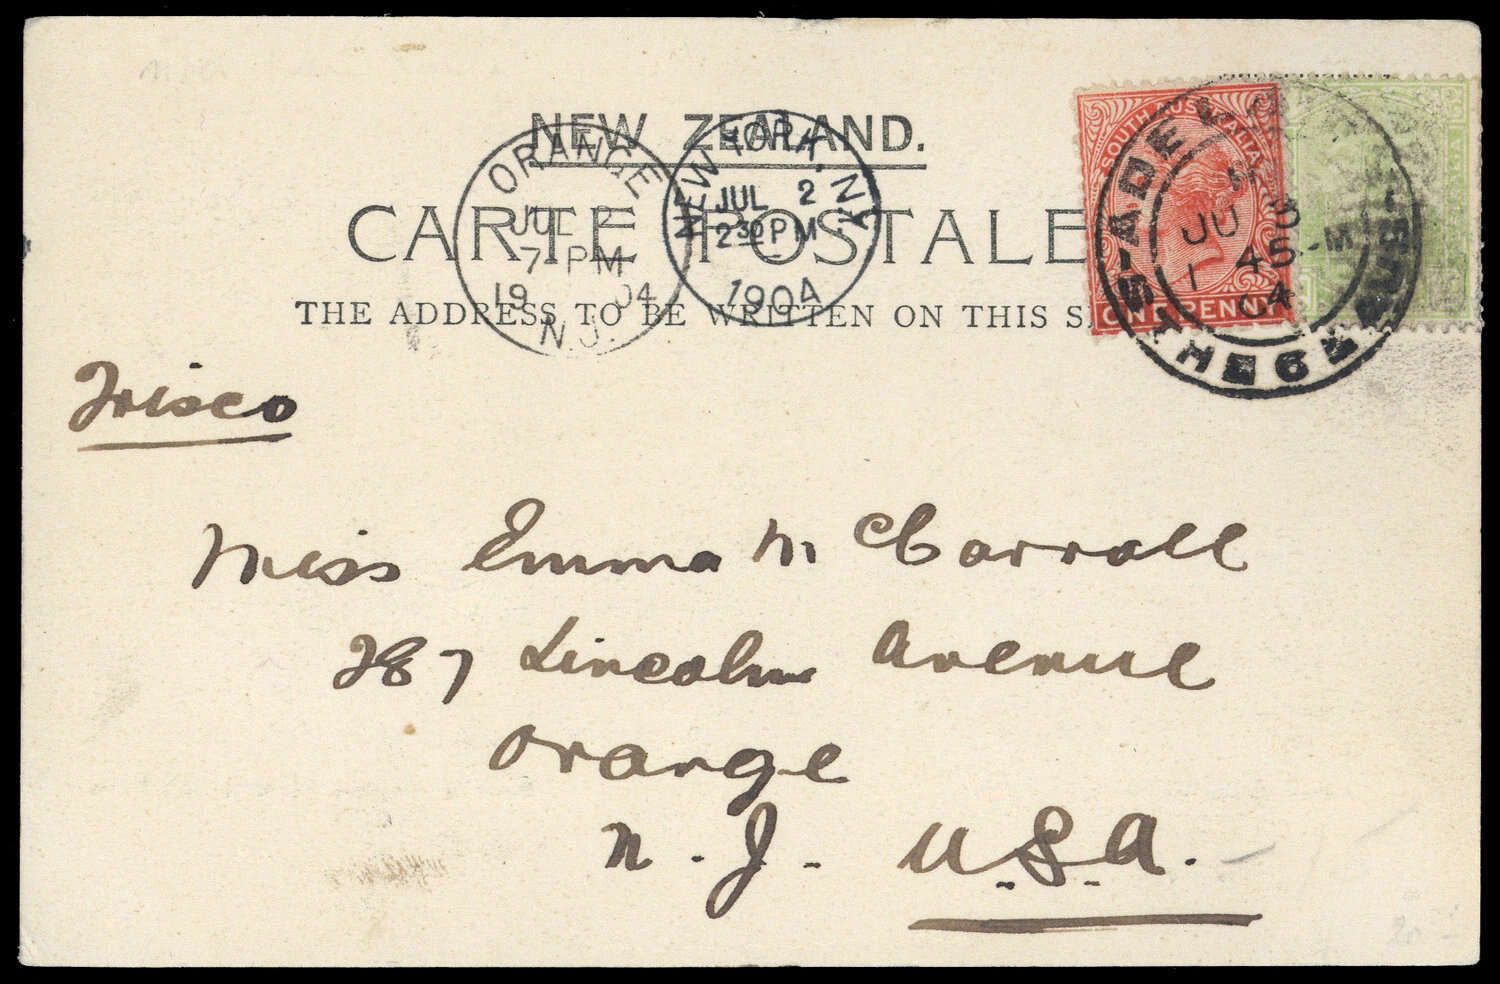 NEW ZEALAND.
CARTE POSTALE
THE ADDRESS TO BE WRITTEN ON THIS S
ORANGE
JUL 2
7 PM
19 04
N.J.
NEW YORK, N.Y.
JUL 2
2 30 PM
1904
SOUTH AUSTRALIA
ONE PENNY
ADEL
JU 3
1 45 M
04
Frisco
Miss Emma M Carroll
287 Lincoln Avenue
Orange
N. J. U.S.A.